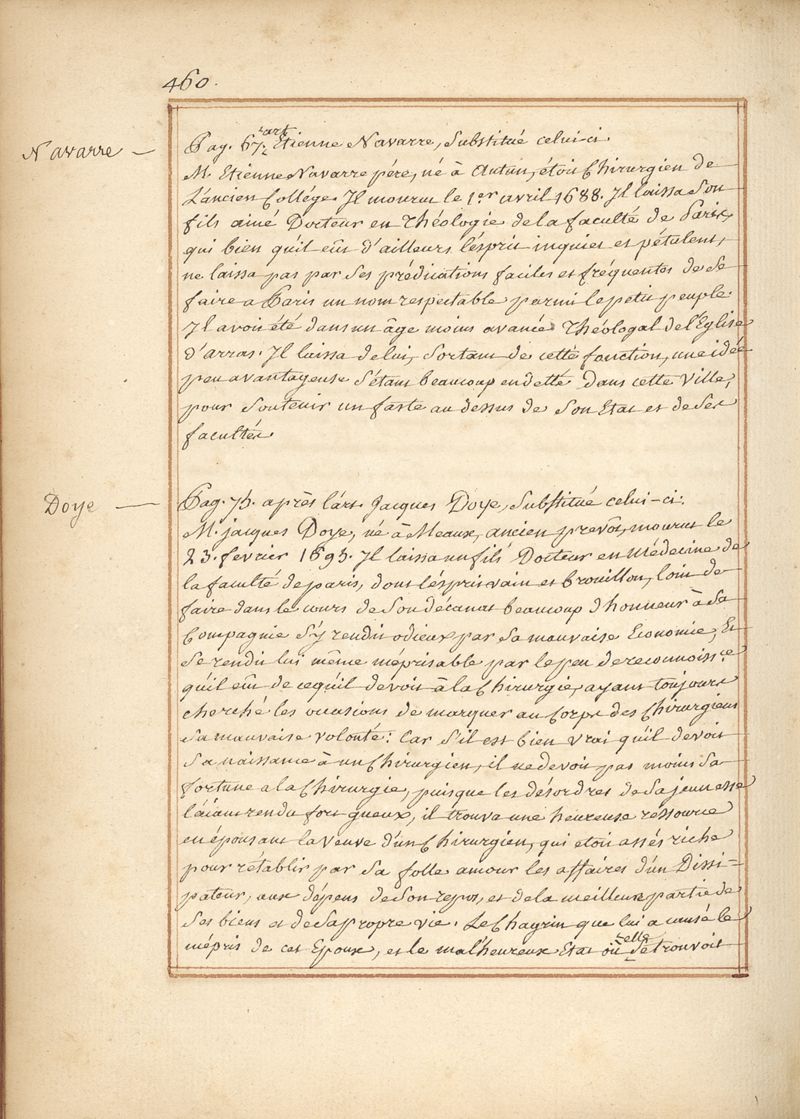 460.
Navarre —
Pag. 67. art Etienne Navarre, Substitué celui-ci.
M. Etienne Navarre pére, né à Autun, étoit Chirurgien de
L'ancien Collége. Il mourut le 1er avril 1688. Il laissa Son
fils ainé Docteur en Théologie de la faculté de Paris,
qui bien qu'il eût d'ailleurs l'esprit inquiet et pétulent,
ne laissa pas par Ses prédications faciles et fréquentes de Se
faire a Paris un nom respectable parmi le petit peuple.
Il avoit été dans un âge moins avancé Théologal de l'Eglise
d'arras. Il laissa de lui, Sortant de cette fonction, une idée
peu avantageuse S'étant beaucoup endetté dans cette Ville,
pour Soutenir un faste au dessus de Son Etat et de Ses
facultés.
Doye —
Pag. 75. après l'art. Jacques Doye, Substitué celui-ci.
M. jacques Doye, né à Meaux, ancien prevôt, mourut le
23. fevrier 1695. Il laissa un fils Docteur en Médecine de
la faculté de paris, dont l'esprit vain et brouillon, loin de
faire dans le cours de Son décanat beaucoup d'honneur à Sa
Compagnie S'y rendit odieux par Sa mauvaise Economie, Et
Se rendit lui même méprisable par le peu de reconnoiss.ce
qu'il eût de ce qu'il devoit à la Chirurgie, ayant toujours
cherché les occasions de marquer au Corps des Chirurgiens
Sa mauvaise volonté: Car S'il est bien vrai qu'il devoit
Sa naissance à un Chirurgien, il ne devoit pas moins Sa
fortune a la Chirurgie, puisque les désordres de Sa jeunesse
l'aiant rendu fort gueux, il trouva une heureuse ressource
en épousant la Veuve d'un Chirurgien, qui etoit assés riche
pour rétablir par Sa folle amour les affaires d'un Dissi-
pateur, aux dépens de Son repos, et de la meilleure partie de
Ses biens et de Sa propre vie. Le Chagrin que lui a causé le
mépris de cet Epoux, et le malheureux Etat où celle Se trouvoit